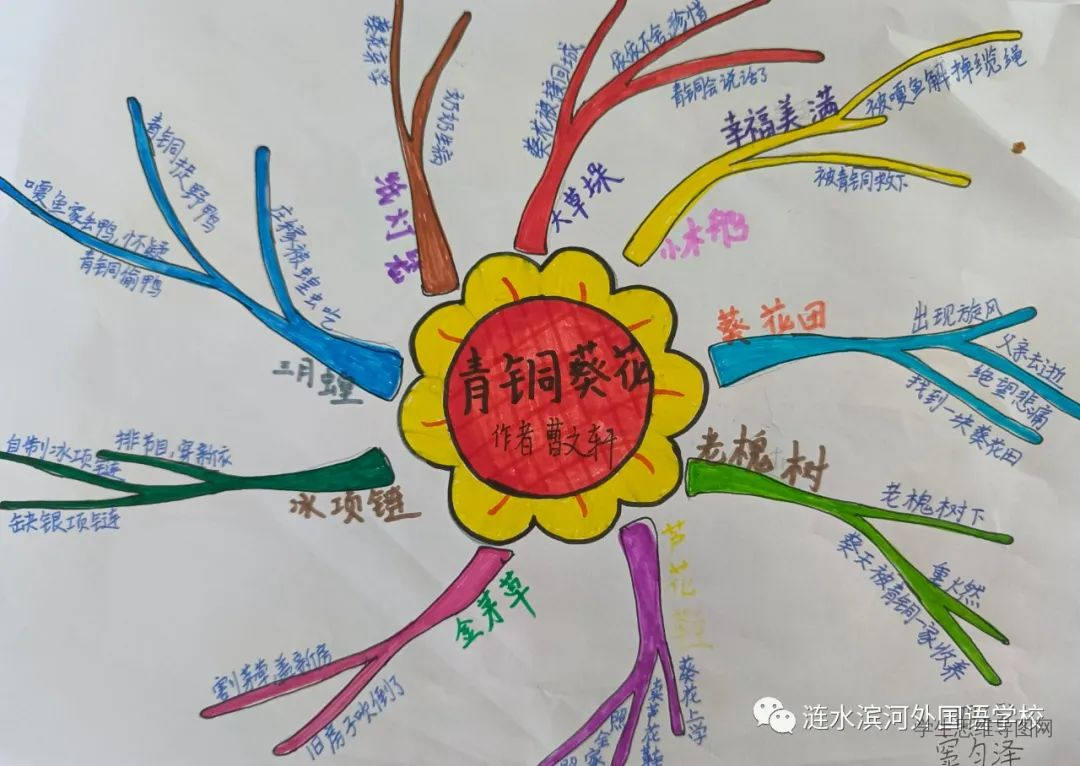 青铜葵花
作者 曹文轩
小木船
幸福美满
被嘎鱼解掉缆绳
被青铜救下
葵花田
出现旋风
父亲去逝
绝望悲痛
找到一块葵花田
老槐树
老槐树下
重火然
葵天被青铜一家收养
芦花鞋
葵花上学
卖芦花鞋
全家照
金茅草
割茅草,盖新房
旧房子吹倒了
冰项链
排节目,穿新衣
自制冰项链
缺银项链
三月蝗
庄稼被蝗虫吃
青铜扶野鸭
嘎鱼家去鸭,怀疑
青铜偷鸭
奶奶生病
大草垛
葵花被接回城
依依不舍
青铜会说话了
涟水滨河外国语学校
学生思维导图网